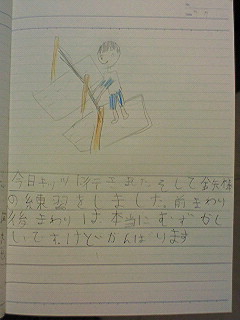 今日キッツに行きました。そして鉄棒
の練習をしました。前まわり
後まわりは、本当にむずかし
いですけどがんばります